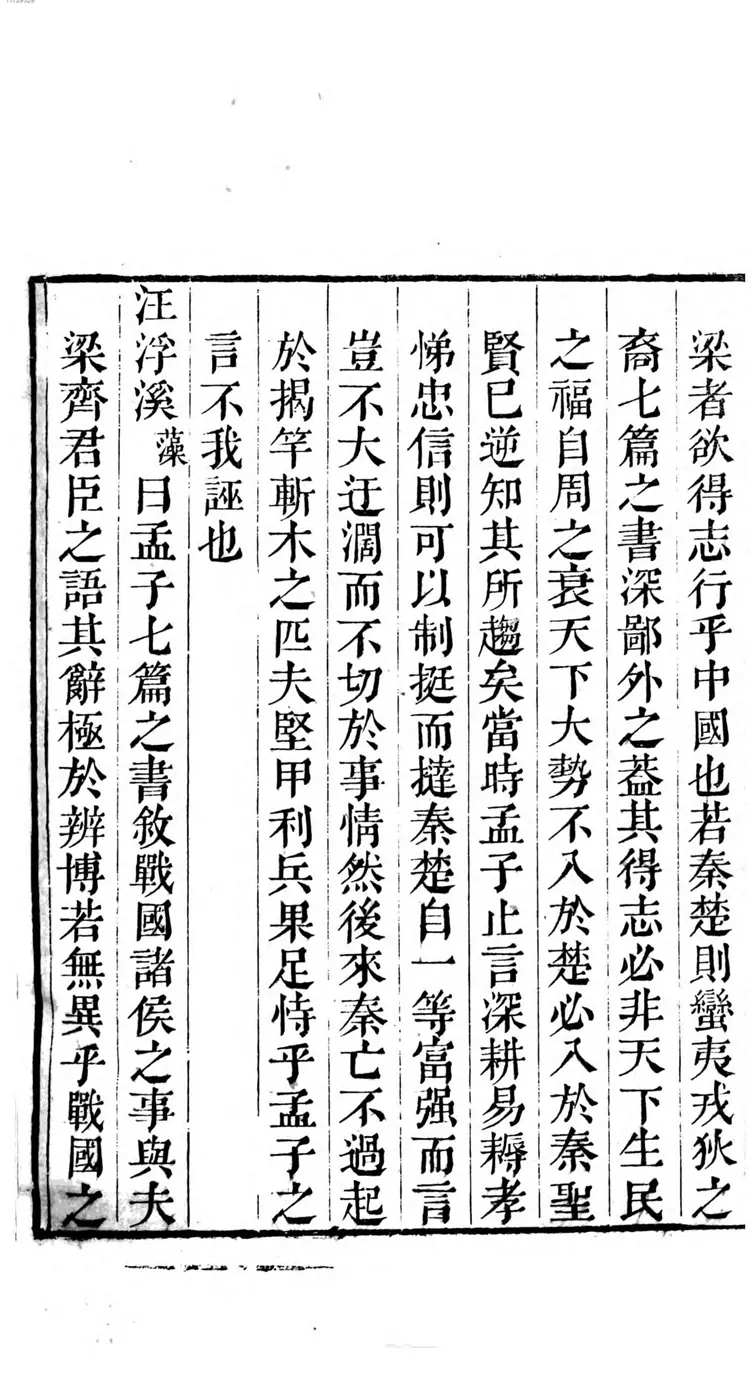 梁者欲得志行乎中國也若秦楚則蠻夷戎狄之
裔七篇之書深鄙外之葢其得志必非天下生民
之福自周之衰天下大勢不入於楚必入於秦聖
賢已逆知其所趨矣當時孟子止言深耕易耨孝
悌忠信則可以制挺而撻秦楚自一等富强而言
豈不大迂濶而不切於事情然後來秦亡不過起
於揭竿斬木之匹夫堅甲利兵果足恃乎孟子之
言不我誣也
汪浮溪藻曰孟子七篇之書敘戰國諸侯之事與夫
梁齊君臣之語其辭極於辨博若無異乎戰國之